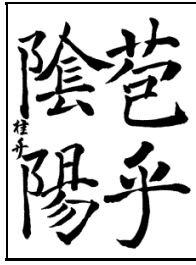 苞乎
陰陽
桂舟